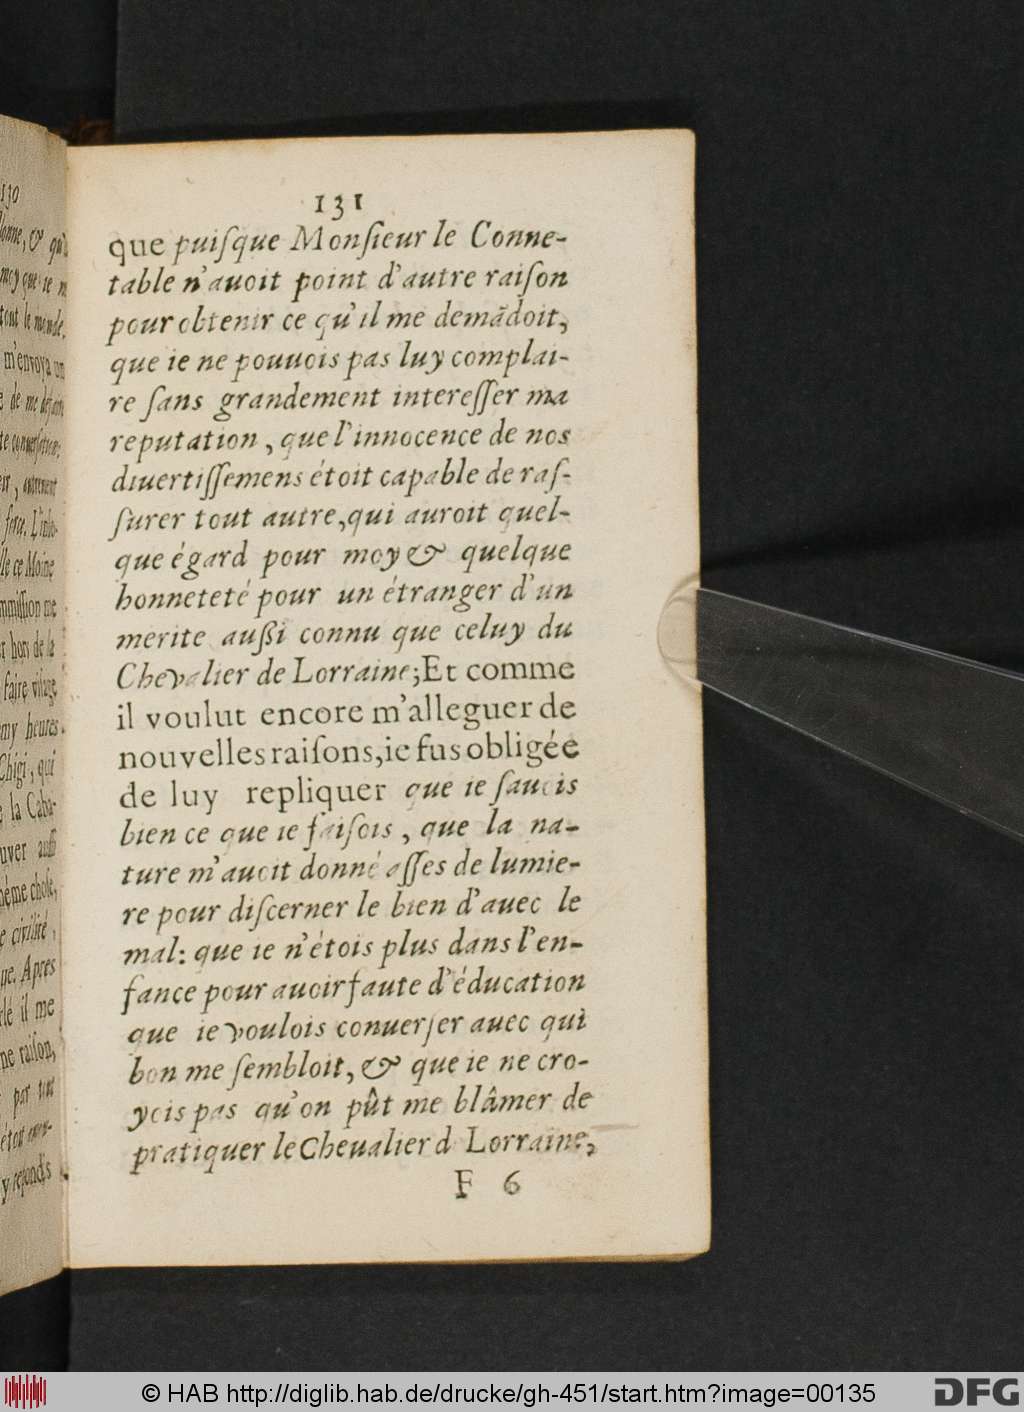 131
que puiſque Monſieur le Conne-
table n'auoit point d'autre raiſon
pour obtenir ce qu'il me demãdoit,
que ie ne pouuois pas luy complai-
re ſans grandement intereſſer ma
reputation, que l'innocence de nos
diuertiſſemens étoit capable de raſ-
ſurer tout autre, qui auroit quel-
que égard pour moy & quelque
honneteté pour un étranger d'un
merite außi connu que celuy du
Chevalier de Lorraine; Et comme
il voulut encore m'alleguer de
nouvelles raiſons, ie fus obligée
de luy repliquer que ie ſauois
bien ce que ie faiſois, que la na-
ture m'auoit donné aſſes de lumie-
re pour diſcerner le bien d'auec le
mal: que ie n'étois plus dans l'en-
fance pour auoir faute d'éducation
que ie voulois conuerſer auec qui
bon me ſembloit, & que ie ne cro-
yois pas qu'on pût me blâmer de
pratiquer le Cheualier d Lorraine,
F 6
130
tout le monde.
m'envoya un
ce Moine
hors de la
faire viſage
my heures
Chigi, qui
la Caba-
uver auſſi
même choſe,
civilité,
que. Apres
lé il me
ne raiſon,
par tout
y repondis
© HAB http://diglib.hab.de/drucke/gh-451/start.htm?image=00135
DFG